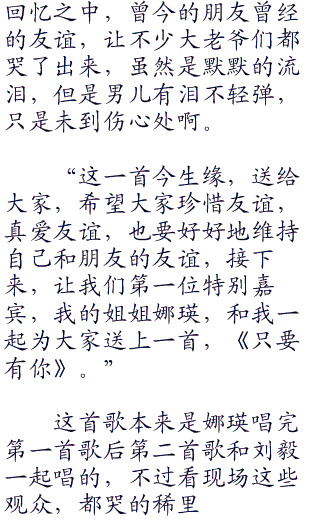 回忆之中，曾今的朋友曾经
的友谊，让不少大老爷们都
哭了出来，虽然是默默的流
泪，但是男儿有泪不轻弹，
只是未到伤心处啊。
“这一首今生缘，送给
大家，希望大家珍惜友谊，
真爱友谊，也要好好地维持
自己和朋友的友谊，接下
来，让我们第一位特别嘉
宾，我的姐姐娜瑛，和我一
起为大家送上一首，《只要
有你》。”
这首歌本来是娜瑛唱完
第一首歌后第二首歌和刘毅
一起唱的，不过看现场这些
观众，都哭的稀里